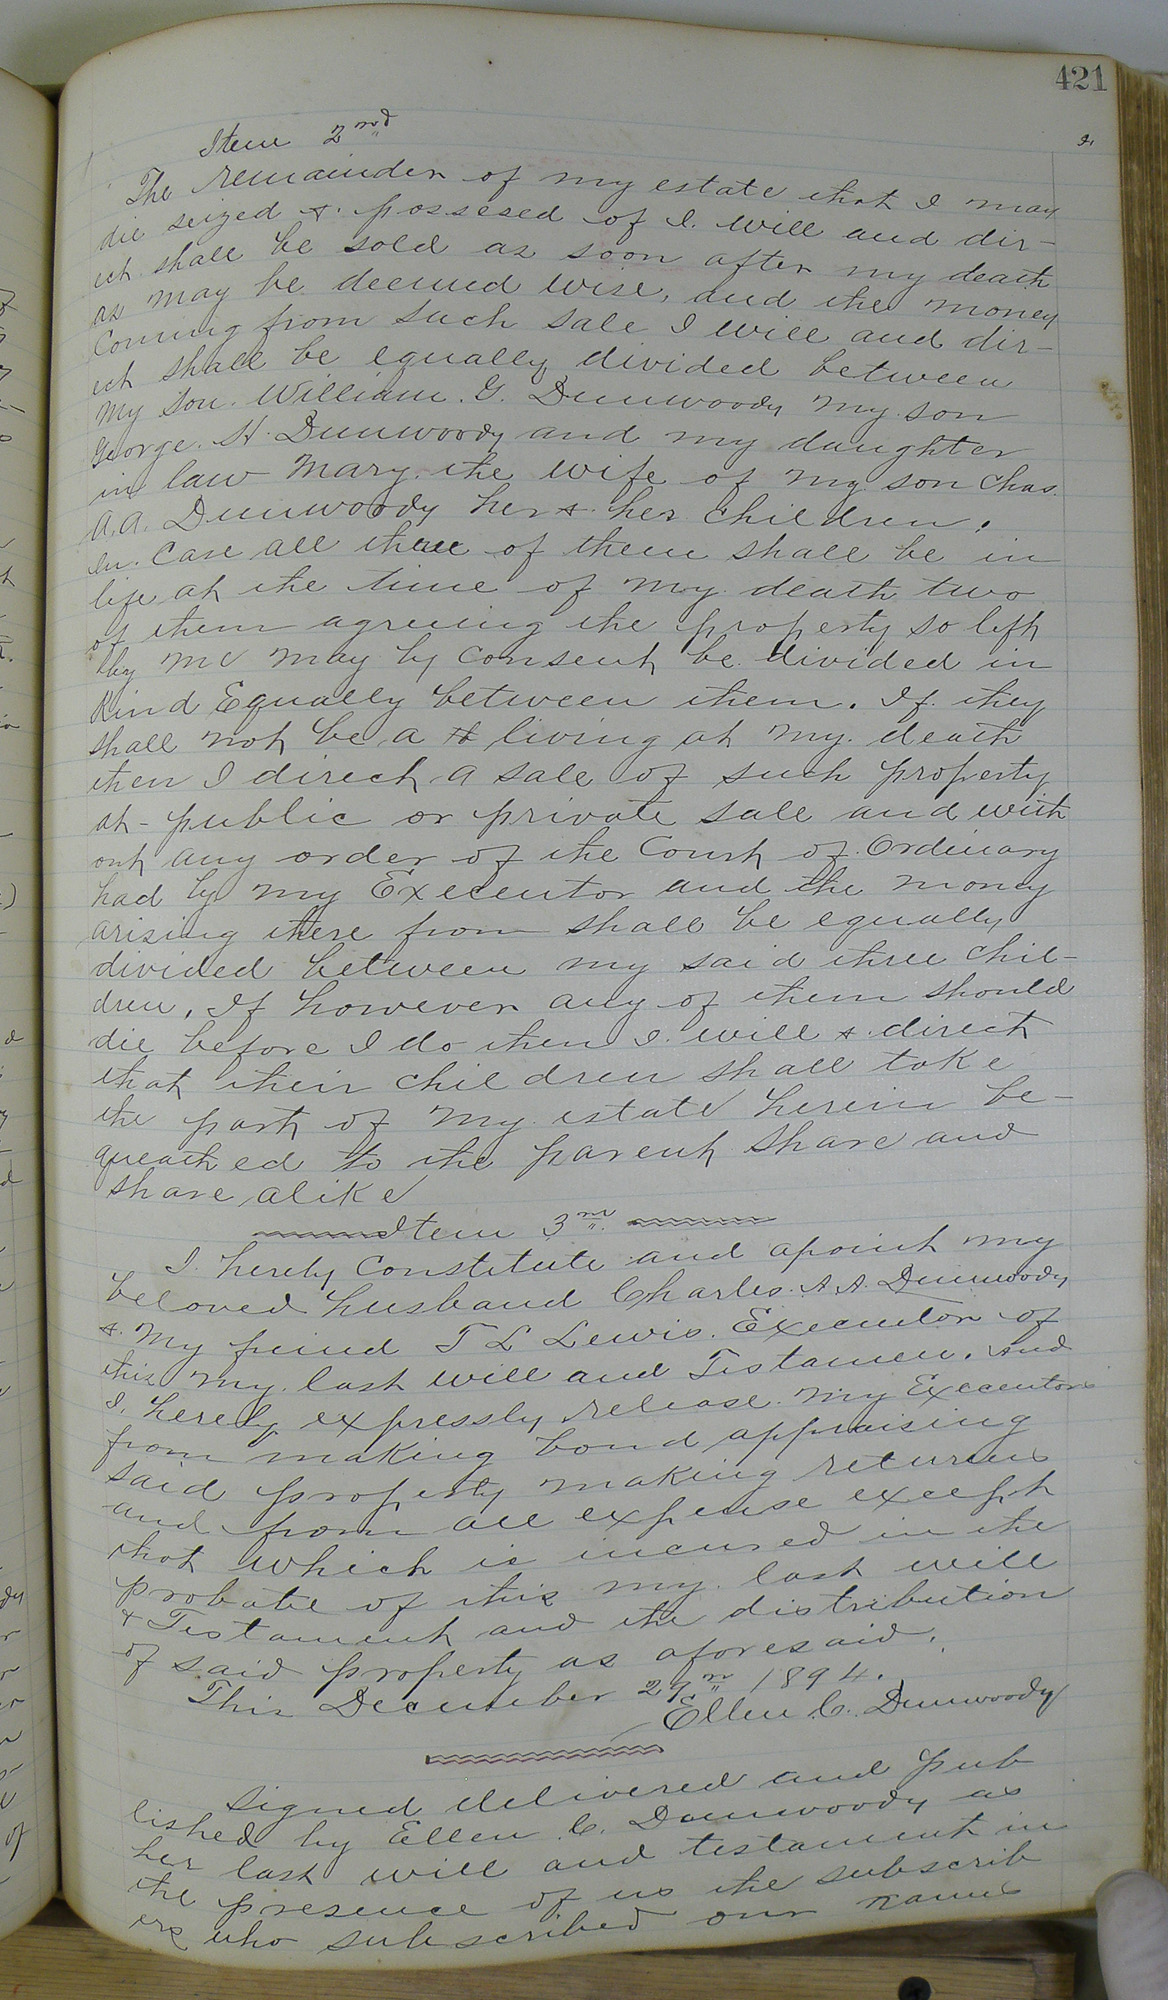 421
Item 2nd
The remainder of my estate that I may
die seized & possesed of I will and dir-
ect shall be sold as soon after my death
as may be deemed wise, and the money
Coming from such sale I will and dir-
ect shall be equally divided between
my son William G. Dunwoody my son
George H. Dunwoody and my daughter
in law Mary the wife of my son Chas.
A.A. Dunwoody her & her children.
In Case all three of them shall be in
life at the time of my death two
of them agreeing the property so left
by me may by Consent be divided in
Kind Equally between them. If they
shall not be a living at my death
then I direct a sale of such property
at - public or private sale and with
out any order of the Court of Ordinary
had by my Executor and the money
arising there from shall be equally
divided between my said three chil-
dren, If however any of them should
die before I do then I will & direct
that their children shall take
the part of my estate herein be-
queathed to the parent Share and
share alike
Item 3rd
I hereby Constitute and apoint my
beloved husband Charles A. A. Dunwoody
& my friend T L Lewis Executor of
this my last will and Testamen. And
I, hereby expressly release my Executors
from making bond appraising
said property making returns
and from all expense except
that which is incured in the
probate of this my last will
& Testament and the distribution
of said property as aforesaid.
This December 27th 1894.
Ellen C. Dunwoody
Signed delivered and pub
lished by Ellen C. Dunwoody as
her last will and testament in
the presence of us the subscrib
ers who subscribed our names